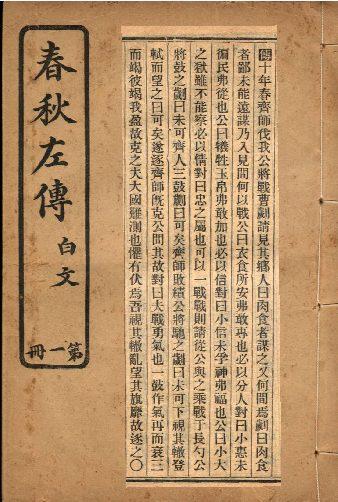 傳十年春齊師伐我公將戰曹劌請見其鄉人曰肉食者謀之又何間焉劌曰肉食
者鄙未能遠謀乃入見問何以戰公曰衣食所安弗敢專也必以分人對曰小惠未
徧民弗從也公曰犧牲玉帛弗敢加也必以信對曰小信未孚神弗福也公曰小大
之獄雖不能察必以情對曰忠之屬也可以一戰戰則請從公與之乘戰于長勺公
將鼓之劌曰未可齊人三鼓劌曰可矣齊師敗績公將馳之劌曰未可下視其轍登
軾而望之曰可矣遂逐齊師旣克公問其故對曰夫戰勇氣也一鼓作氣再而衰三
而竭彼竭我盈故克之夫大國難測也懼有伏焉吾視其轍亂望其旗靡故逐之〇
春秋左傳
白文
第一冊